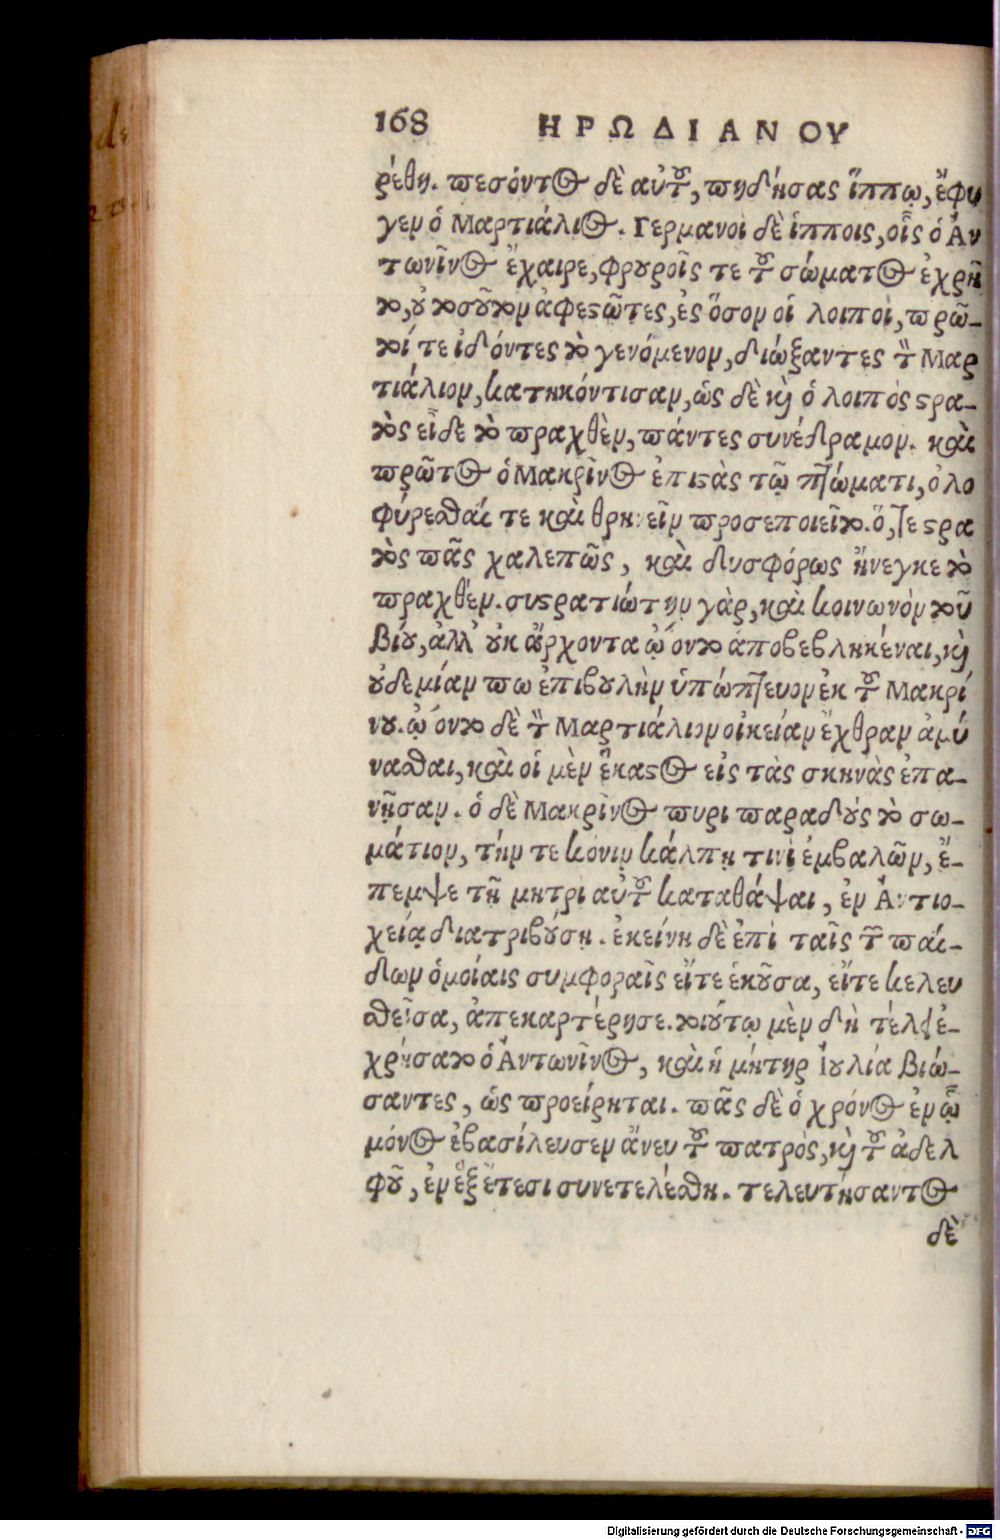 168 ΗΡΩΔΙΑΝΟΥ
ρέθη. πεσόντος δὲ αὐτοῦ, πηδήσας ἵππῳ, ἔφυ
γεν ὁ Μαρτιάλιος. Γερμανοὶ δὲ ἱπποις, οἷς ὁ Ἀν
τωνῖνος ἔχαιρε, φρουροῖς τε τοῦ σώματος ἐχρῆ
το, οὐ τοσοῦτον ἀφεστῶτες, ἐς ὅσον οἱ λοιποὶ, πρῶ-
τοί τε ἰδόντες τὸ γενόμενον, διώξαντες τὸν Μαρ
τιάλιον, κατηκόντισαν, ὡς δὲ καὶ ὁ λοιπὸς στρα-
τὸς εἶδε τὸ πραχθὲν, πάντες συνέδραμον. καὶ
πρῶτος ὁ Μακρῖνος ἐπιστὰς τῷ πτώματι, ὀλο
φύρεσθαί τε καὶ θρηνεῖν προσεποιεῖτο. ὅ, τε στρα
τὸς πᾶς χαλεπῶς, καὶ δυσφόρως ἤνεγκε τὸ
πραχθέν. συστρατιώτην γὰρ, καὶ κοινωνὸν τοῦ
βίου, ἀλλ' οὐκ ἄρχοντα ᾤοντο ἀποβεβληκέναι, καὶ
οὐδεμίαν πω ἐπιβουλὴν ὑπώπτευον ἐκ τοῦ Μακρί
νου. ᾤοντο δὲ τὸν Μαρτιάλιον οἰκείαν ἔχθραν ἀμύ
νασθαι, καὶ οἱ μὲν ἕκαστος εἰς τὰς σκηνὰς ἐπα-
νῇσαν. ὁ δὲ Μακρῖνος πυρι παραδούς τὸ σω-
μάτιον, τήν τε κόνιν κάλπῃ τινὶ ἐμβαλῶν, ἔ-
πεμψε τῇ μητρι αὐτοῦ καταθάψαι, ἐν Ἀντιο-
χείᾳ διατριβούσῃ. ἐκείνη δὲ ἐπὶ ταῖς τῶν παί-
δων ὁμοίαις συμφοραῖς εἴτε ἑκοῦσα, εἴτε κελευ
σθεῖσα, ἀπεκαρτέρησε. τοιούτῳ μὲν δὴ τέλει ἐ-
χρήσατο ὁ Ἀντωνῖνος, καὶ ἡ μήτηρ Ἰουλία βιώ-
σαντες, ὡς προείρηται. πᾶς δὲ ὁ χρόνος ἐν ᾧ
μόνος ἐβασίλευσεν ἄνευ τοῦ πατρὸς, καὶ τοῦ ἀδελ
φοῦ, ἐν ἓξ ἔτεσι συνετελέσθη. τελευτήσαντος
δὲ
Digitalisierung gefördert durch die Deutsche Forschungsgemeinschaft - DFG